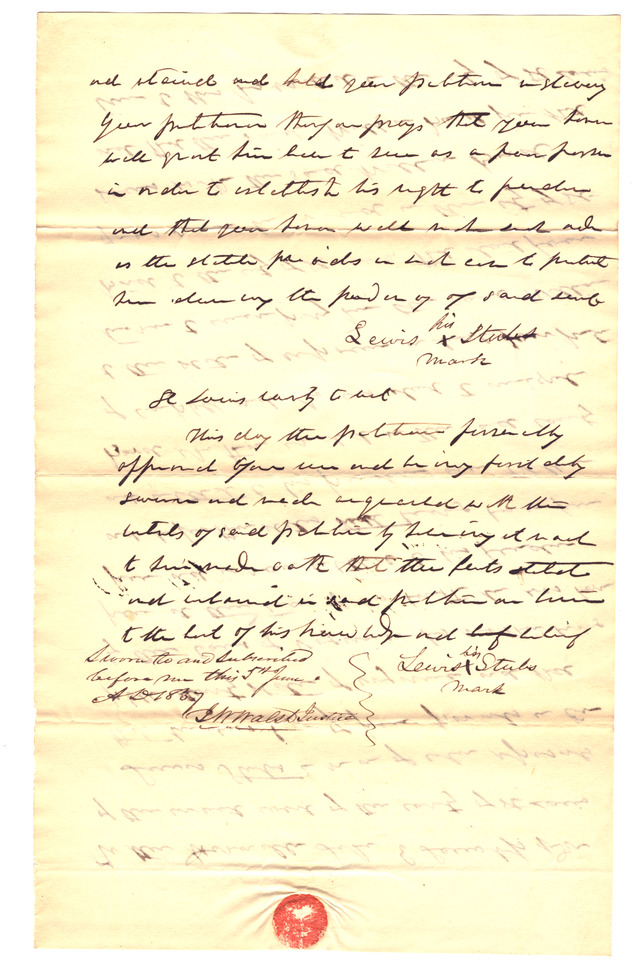 and detained and held your petitioner in slavery
Your petitioner therefore prays that your honor
will grant him leave to sue as a poor person
in order to establish his right to freedom
and that your honor will make such order
as the statute provides in such case to protect
him during the pendency of said suit
his
Lewis x Stubs
mark
St Louis County to wit
This day the petitioner personally
appeared before me and being first duly
sworn and made acquainted with the
contents of said petition by hearing it read
to him made oath that the facts stated
and contained in said petition are true
to the best of his knowledge and belief
Sworn to and Subscribed
before me this 5th of June
A.D. 1837
J W Walsh Justice
his
Lewis x Stubs
mark